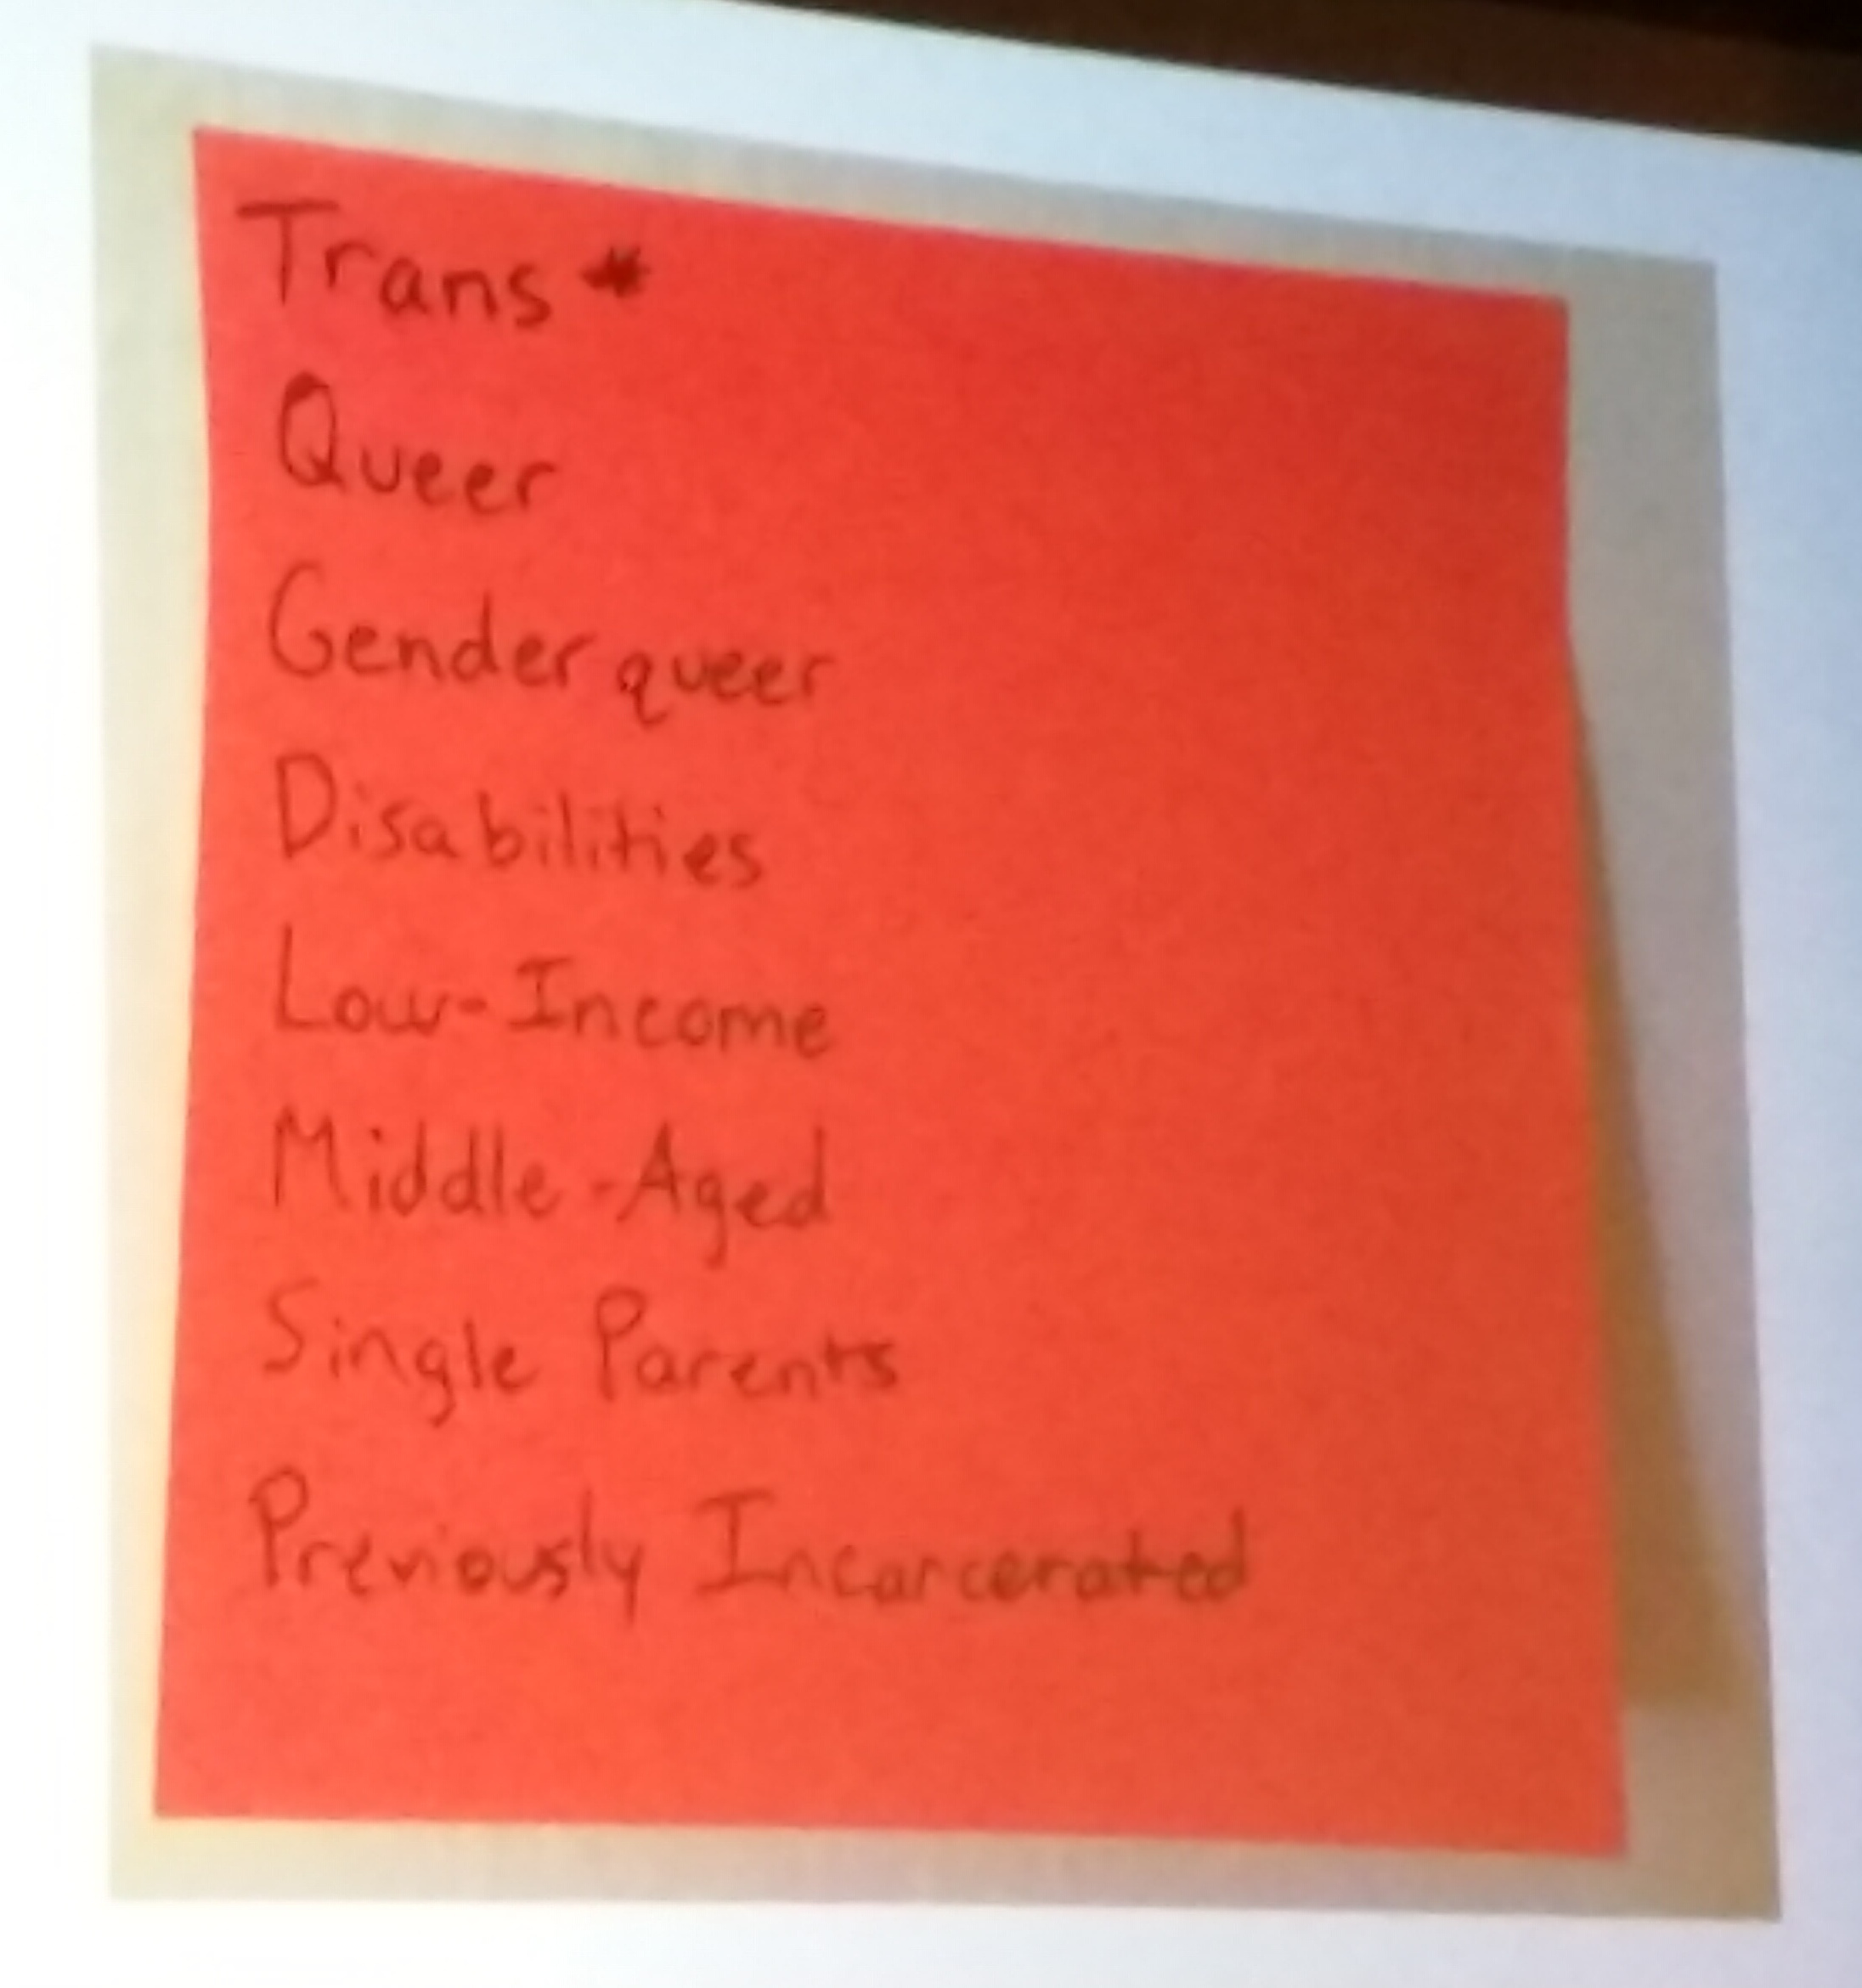 Trans*
Queer
Genderqueer
Disabilities
Low-Income
Middle-Aged
Single Parents
Previously Incarcerated